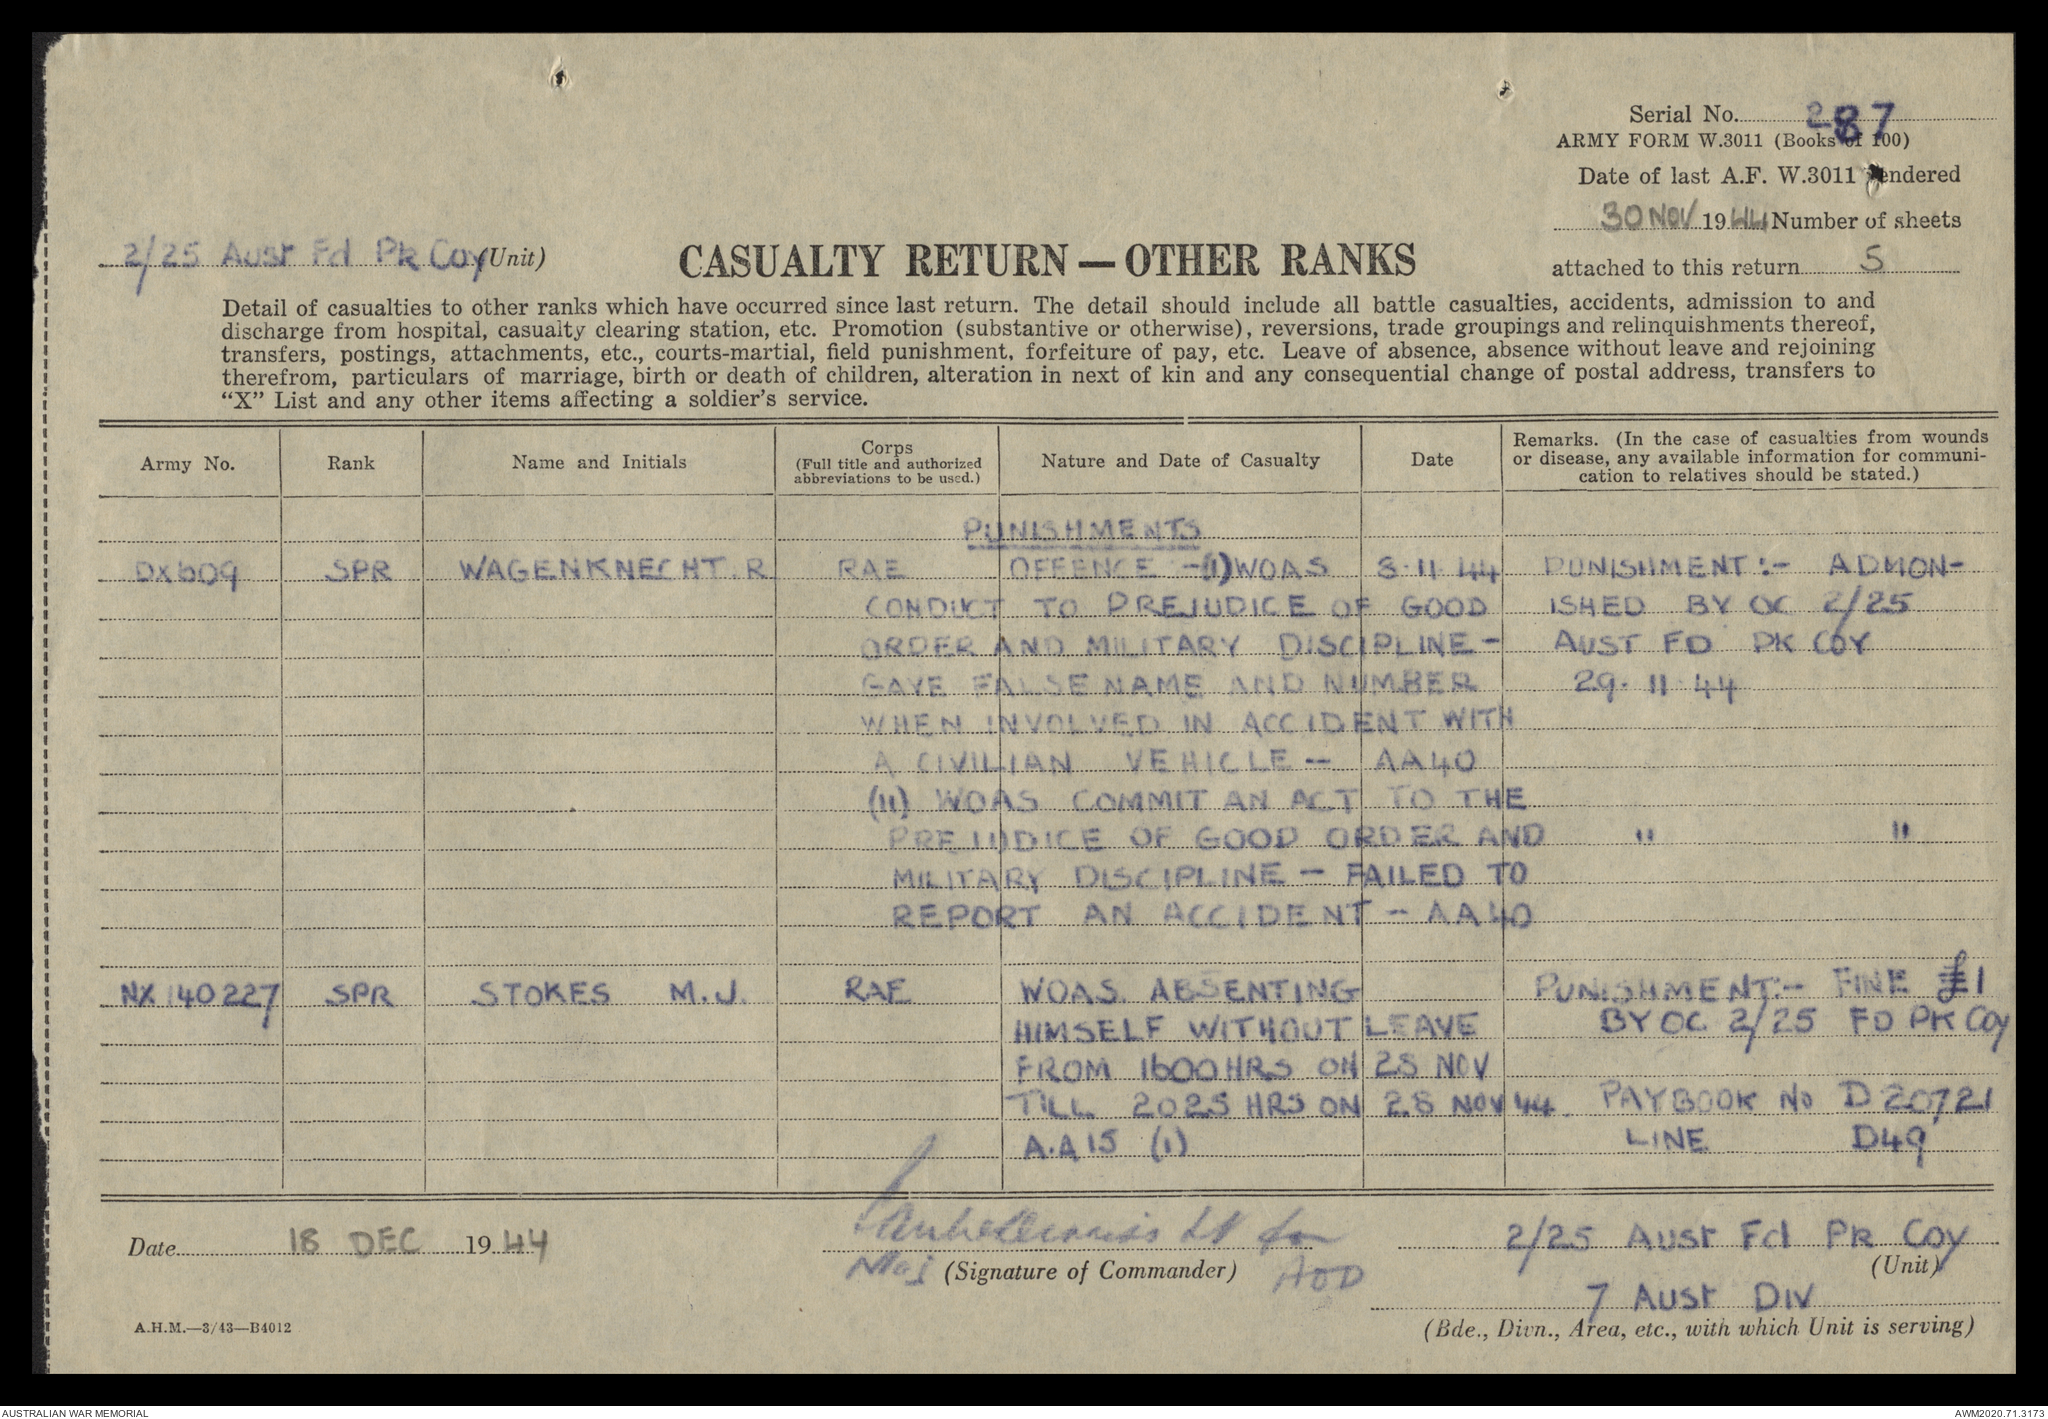 Serial No. 287
ARMY FORM W.3011 (Books of 100)
Date of last A.F. W.3011 rendered
30 NOV 1944 Number of sheets
attached to this return 5
2/25 Aust Fd Pk Coy (Unit)
CASUALTY RETURN — OTHER RANKS
Detail of casualties to other ranks which have occurred since last return. The detail should include all battle casualties, accidents, admission to and
discharge from hospital, casualty clearing station, etc. Promotion (substantive or otherwise), reversions, trade groupings and relinquishments thereof,
transfers, postings, attachments, etc., courts-martial, field punishment, forfeiture of pay, etc. Leave of absence, absence without leave and rejoining
therefrom, particulars of marriage, birth or death of children, alteration in next of kin and any consequential change of postal address, transfers to
"X" List and any other items affecting a soldier's service.
Army No. Rank Name and Initials Corps (Full title and authorized abbreviations to be used.) Nature and Date of Casualty Date Remarks. (In the case of casualties from wounds or disease, any available information for communi-cation to relatives should be stated.)
PUNISHMENTS
DX609 SPR WAGENKNECHT. R RAE OFFENCE -(I) WOAS 8.11.44 PUNISHMENT :- ADMON-
CONDUCT TO PREJUDICE OF GOOD ISHED BY OC 2/25
ORDER AND MILITARY DISCIPLINE - AUST FD PK COY
GAVE FALSE NAME AND NUMBER 29.11.44
WHEN INVOLVED IN ACCIDENT WITH
A CIVILIAN VEHICLE - AA40
(II) WOAS COMMIT AN ACT TO THE
PREJUDICE OF GOOD ORDER AND " "
MILITARY DISCIPLINE - FAILED TO
REPORT AN ACCIDENT - AA40
NX140227 SPR STOKES M.J. RAE WOAS ABSENTING PUNISHMENT:- FINE £1
HIMSELF WITHOUT LEAVE BY OC 2/25 FD PK COY
FROM 1600HRS ON 28 NOV
TILL 2025 HRS ON 28 NOV 44. PAYBOOK No D20721
A.A 15 (1) LINE D49
Date 18 DEC 1944 Lt for 2/25 Aust Fd Pk Coy
Maj (Signature of Commander) AOD (Unit)
7 Aust Div
A.H.M.—3/43—B4012 (Bde., Divn., Area, etc., with which Unit is serving)
AUSTRALIAN WAR MEMORIAL AWM2020.71.3173